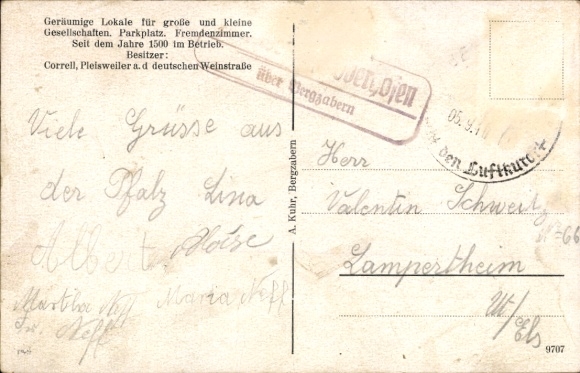 Geräumige Lokale für große und kleine
Gesellschaften. Parkplatz. Fremdenzimmer.
Seit dem Jahre 1500 im Betrieb.
Besitzer:
Correll, Pleisweiler a.d deutschen Weinstraße
über Bergzabern
05.9.
den Luftkurort
Viele Grüsse aus
der Pfalz Lina
Albert
Martha Neff Maria Neff
Neff
A. Kuhr, Bergzabern
Herr
Valentin Schweitz
Lampertheim
U/
Els
9707